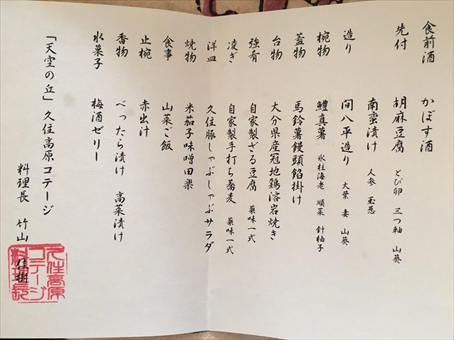 食前酒 かぼす酒
先付 胡麻豆腐 とび卵 三つ軸 山葵
南蛮漬け 人参 玉葱
造り 間八平造り 大葉 妻 山葵
椀物 鱧真薯 氷柱海老 順菜 針柚子
蓋物 馬鈴薯饅頭餡掛け
台物 大分県産冠地鶏溶岩焼き
強肴 自家製ざる豆腐 薬味一式
凌ぎ 自家製手打ち蕎麦 薬味一式
洋皿 久住豚しゃぶしゃぶサラダ
焼物 米茄子味噌田楽
食事 山菜ご飯
止椀 赤出汁
香物 べったら漬け 高菜漬け
水菓子 梅酒ゼリー
「天空の丘」久住高原コテージ
料理長 竹山 信樹
久住高原
コテージ
料理長